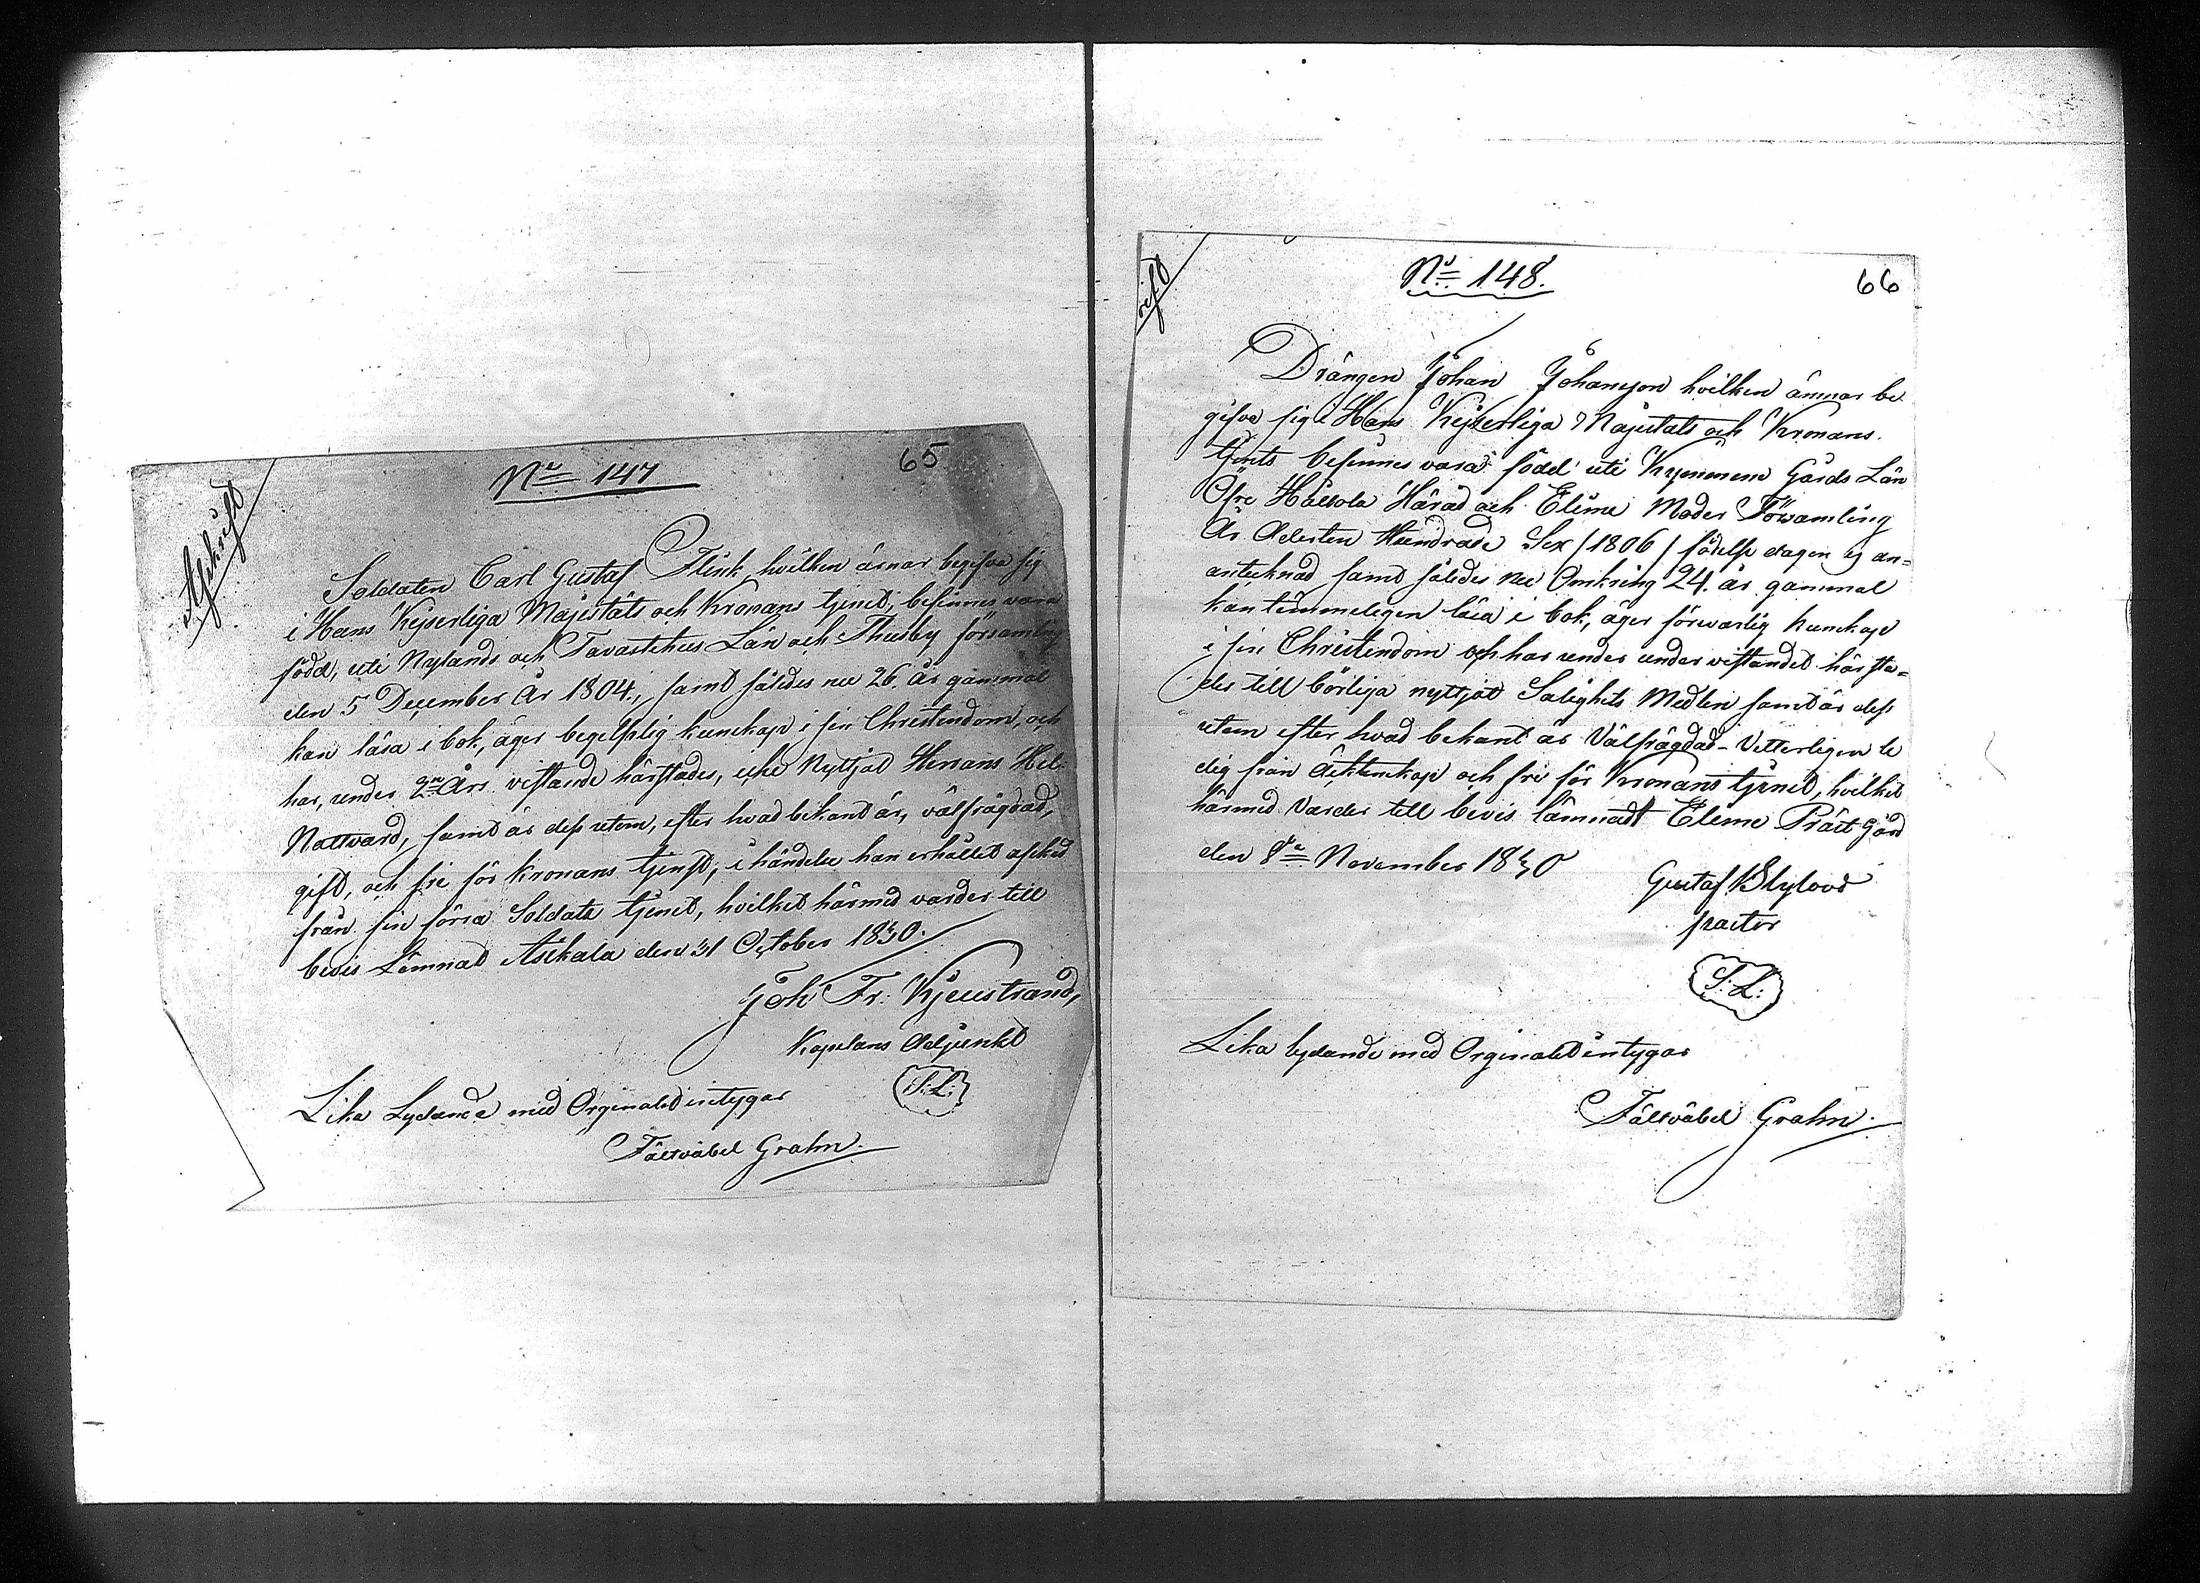 65
Afskrift
No 147
Soldaten Carl Gustaf Flink hvilken ärnar begifva sig
i Hans Kejserliga Majestäts och Kronans tjenst, befinnes vara
född, uti Nylands och Tavastehus Län och Thusby församling
den 5 December År 1804., samt således nu 26. År gammal
kan läsa i bok, äger begriplig kunskap i sin Christendom, och
har, under 2ne Års vistande härstädes, icke Nyttjat Herrans Hel:
Nattvard, samt är dess utom, efter hvad bekant är, välfrägdad,
gift, och fri för Kronans tjenst, i händelse han erhållit afsked
från sin förra Soldats tjenst, hvilket härmed varder till
bevis Lämnad Asikala den 31 October 1830.
Joh Fr: Kjeustrand,
Kapelans Adjunkt
S:L:
Lika Lydande med Orginalet intygar
Fältväbel Grahn.
rift
No 148.
66
Drängen Johan Johansson hvilken ämnar be
gifva sig i Hans Kejserliga Majestäts och Kronans
tjents befinnes vara född uti Kymmene Gårds Län
Öfre Hållola Härad och Elime Moder Församling
År Aderton Hundrade Sex /1806/ födelse dagen ej an=
antecknad samt således nu Omkring 24. år gammal
kan temmeligen läsa i bok, äger försvarlig kunskap
i sin Christendom och har under under vistandet härstä=
des till börliga nyttjat Salighets Medlen samt är dess
utom efter hvad bekant är Välfrägdad - Vetterligen le
dig från äcktenskap och fri för Kronans tjenst, hvilket
härmed Varder till bevis lämnadt Elime Präst Gård
den 8de November 1830
Gustaf
pastor
S:L:
Lika lydande med Orginalet intygar
Fältväbel Grahn.